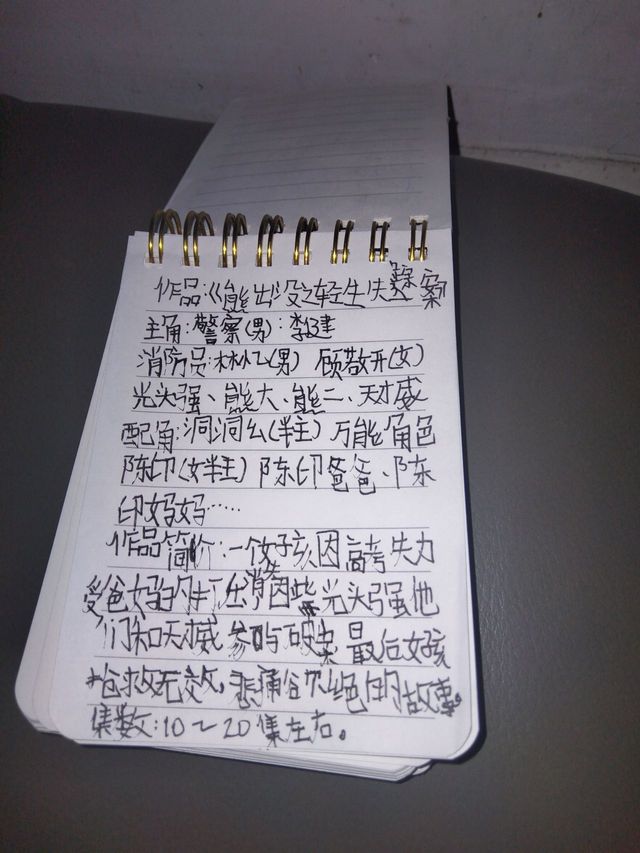 作品:《熊出没之轻生失踪案
主角:警察(男):李建
消防员:林忆(男) 顾敬开(女)
光头强、熊大、熊二、天才威
配角:洞洞幺(半主) 万能角色
陈印(女半主) 陈印爸爸、陈
印妈妈……
作品简介:一个女孩因高考失力
受爸妈的 出 因此 光头强他
们和天威参与破案 最后女孩
抢救无效,悲痛 绝的故事。
集数:10~20集左右。